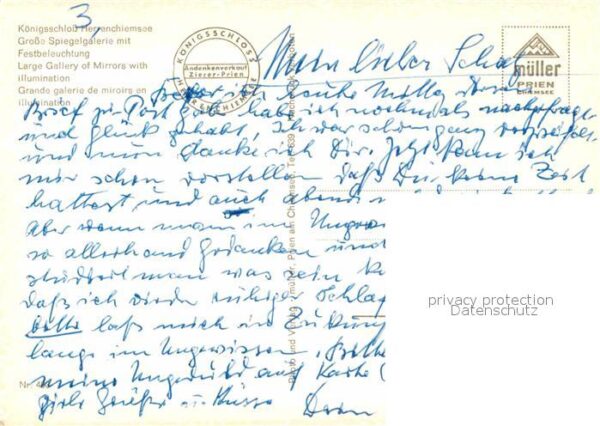 3.
Königsschloß Herrenchiemsee
Große Spiegelgalerie mit
Festbeleuchtung
Large Gallery of Mirrors with
illumination
Grande galerie de miroirs en
illumination
KÖNIGSSCHLOSS
Andenkenverkauf
Zierer-Prien
HERRENCHIEMSEE
müller
PRIEN
CHIEMSEE
Mein lieber Schatz
Bevor ich heute Mittag Deinen
Brief zur Post habe ich nochmals nachgefragt
und Glück gehabt, ich war schon ganz verzweifelt
und nun danke ich Dir. Jetzt kann ich
mir schon vorstellen daß Du keine Zeit
hattest und auch abends
Aber wenn man im Ungewi
so allerhand Gedanken und
man was sein k
daß ich wieder ruhiger Schla
bitte laß mich in Zukunf
lange im Ungewissen. Bitte
meine Ungeduld auf Karte (
viele Grüße u. Küsse Dein
privacy protection
Datenschutz
Nr. 4